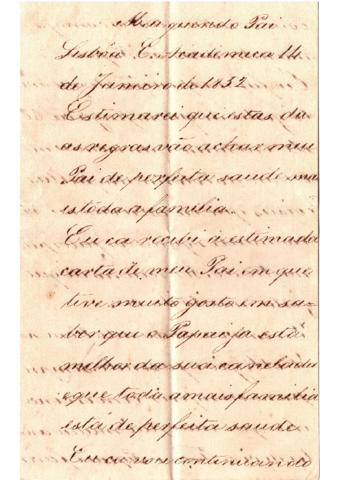 Meu querido Pai
Lisboa E. Academica 14
de Janeiro de 1852
Estimarei que estas du
as regras vão achar meu
Pai de perfeita saude ma
is toda a familia.
Eu ca recibi a estimada
carta de meu Pai em que
tive muito gosto em sa-
ber que o Papai ja está
melhor da sua canelada
e que toda a mais familia
está de perfeita saude.
Eu ca vou continuando